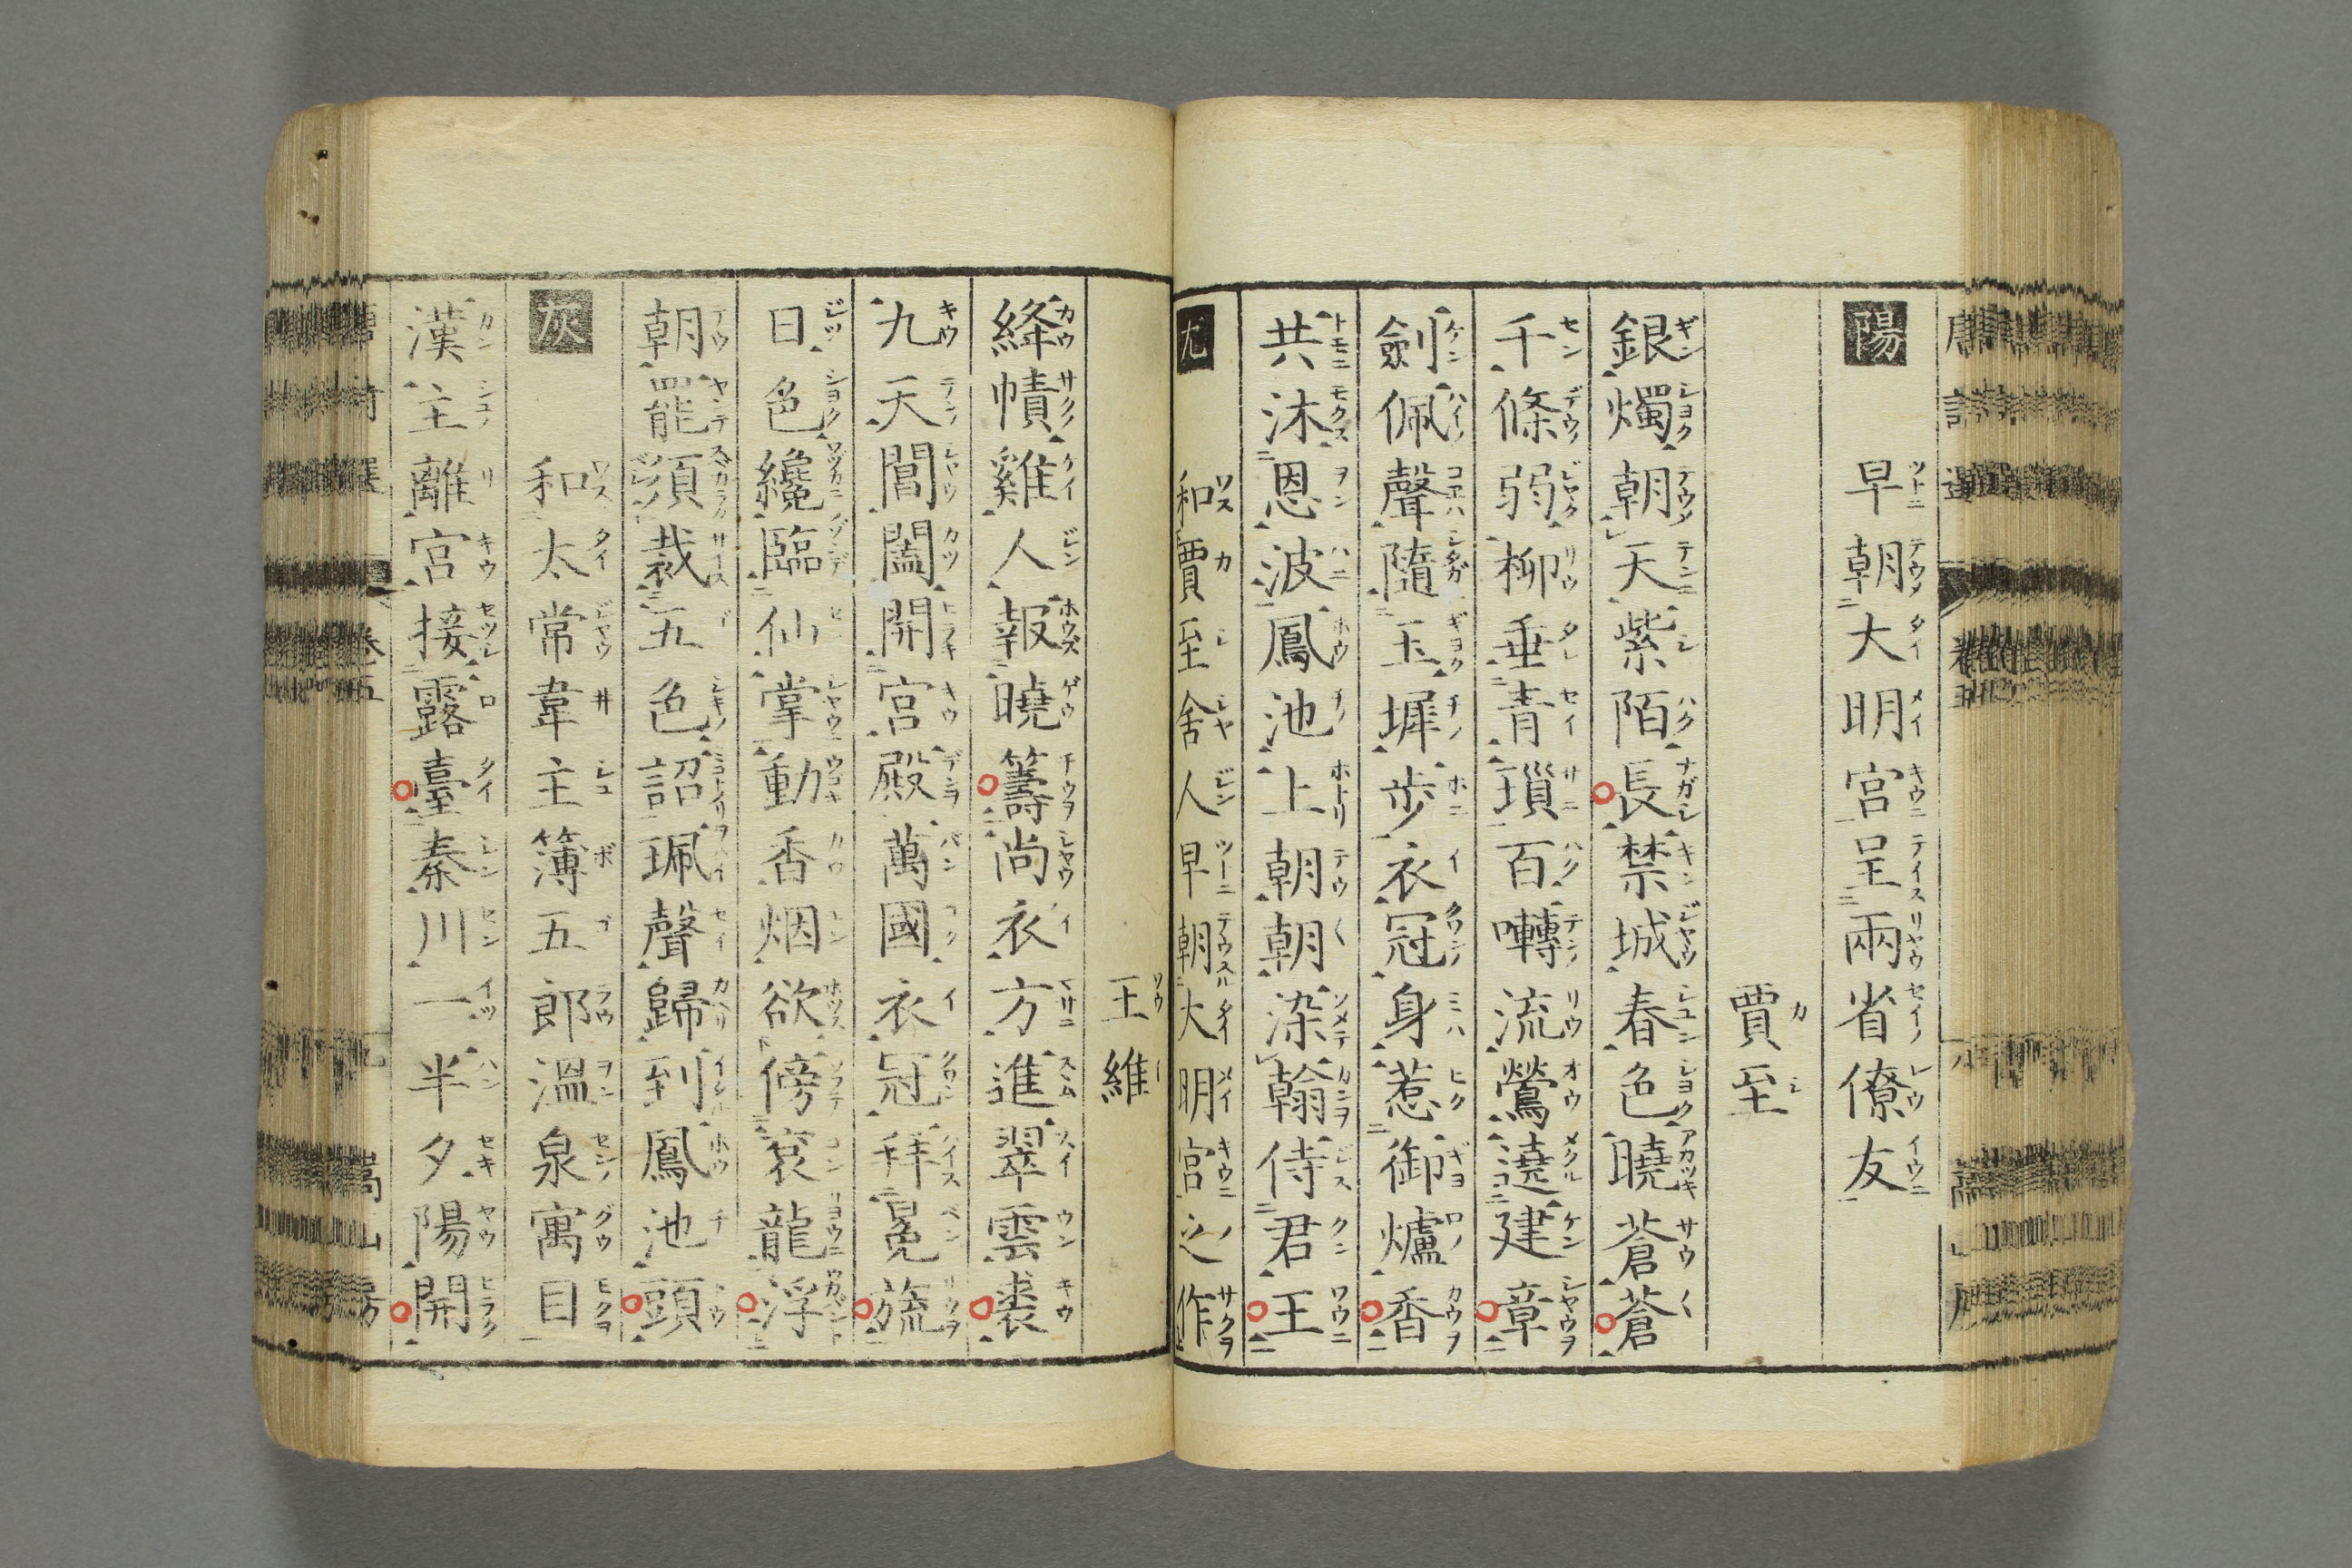 陽 早朝大明宮呈兩省僚友
賈至
銀燭朝天紫陌長禁城春色曉蒼蒼
千條弱柳垂青瑣百囀流鶯遶建章
劍佩聲隨玉墀步衣冠身惹御爐香
共沐恩波鳳池上朝朝染翰侍君王
尤 和賈至舍人早朝大明宮之作
王維
絳幘雞人報曉籌尚衣方進翠雲裘
九天閶闔開宮殿萬國衣冠拜冕旒
日色纔臨仙掌動香烟欲傍袞龍浮
朝罷須裁五色詔珮聲歸到鳳池頭
灰 和太常韋主簿五郎溫泉寓目
漢主離宮接露臺秦川一半夕陽開